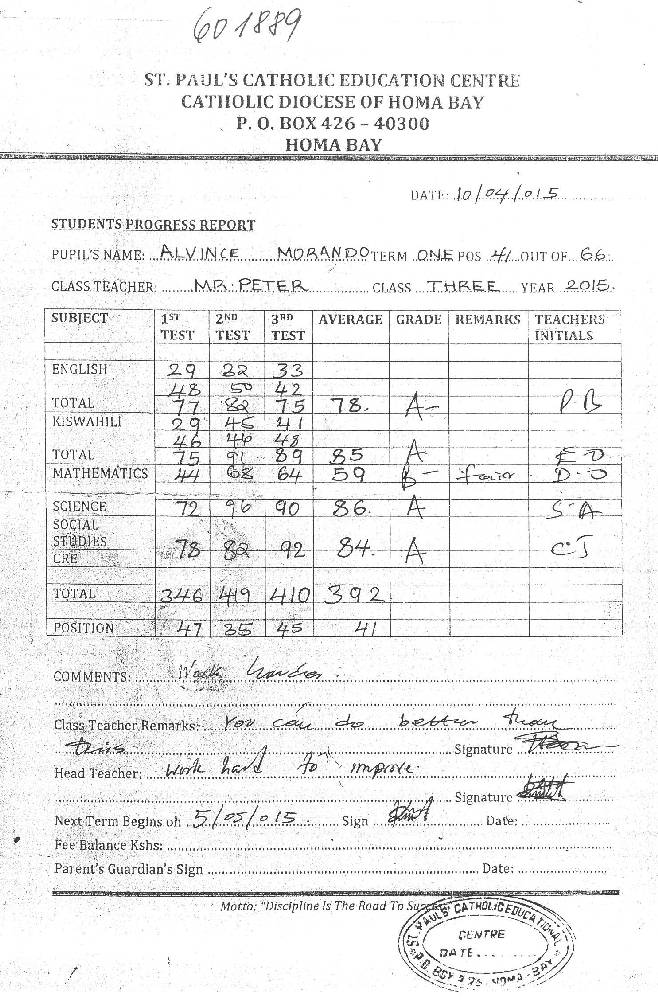 601889
ST. PAUL'S CATHOLIC EDUCATION CENTRE
CATHOLIC DIOCESE OF HOMA BAY
P. O. BOX 426 – 40300
HOMA BAY
DATE: 10/04/015
STUDENTS PROGRESS REPORT
PUPIL'S NAME: ALVINCE MORANDO TERM ONE POS 41 OUT OF 66
CLASS TEACHER: MR. PETER CLASS THREE YEAR 2015.
SUBJECT 1ST TEST 2ND TEST 3RD TEST AVERAGE GRADE REMARKS TEACHERS INITIALS
ENGLISH 29 32 33
48 50 42
TOTAL 77 82 75 78. A- P B
KISWAHILI 29 45 41
46 46 48
TOTAL 75 91 89 85 A E O
MATHEMATICS 44 68 64 59 B- fair D-O
SCIENCE 72 96 90 86. A S-A
SOCIAL
STUDIES 78 82 92 84. A CJ
CRE
TOTAL 346 419 410 392
POSITION 47 35 45 41
COMMENTS: Work harder.
Class Teacher Remarks: You can do better than
this Signature
Head Teacher: Work hard to improve
Signature
Next Term Begins on 5/05/015 Sign Date:
Fee Balance Kshs:
Parent's Guardian's Sign Date:
Motto: "Discipline Is The Road To
ST. PAUL'S CATHOLIC EDUCATIONAL
CENTRE
DATE
P.O. BOX HOMA-BAY